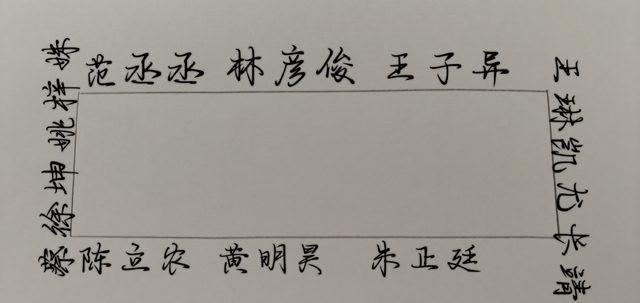 范丞丞 林彦俊 王子异
王琳凯 尤长靖
蔡徐坤 姚梓姝
陈立农 黄明昊 朱正廷